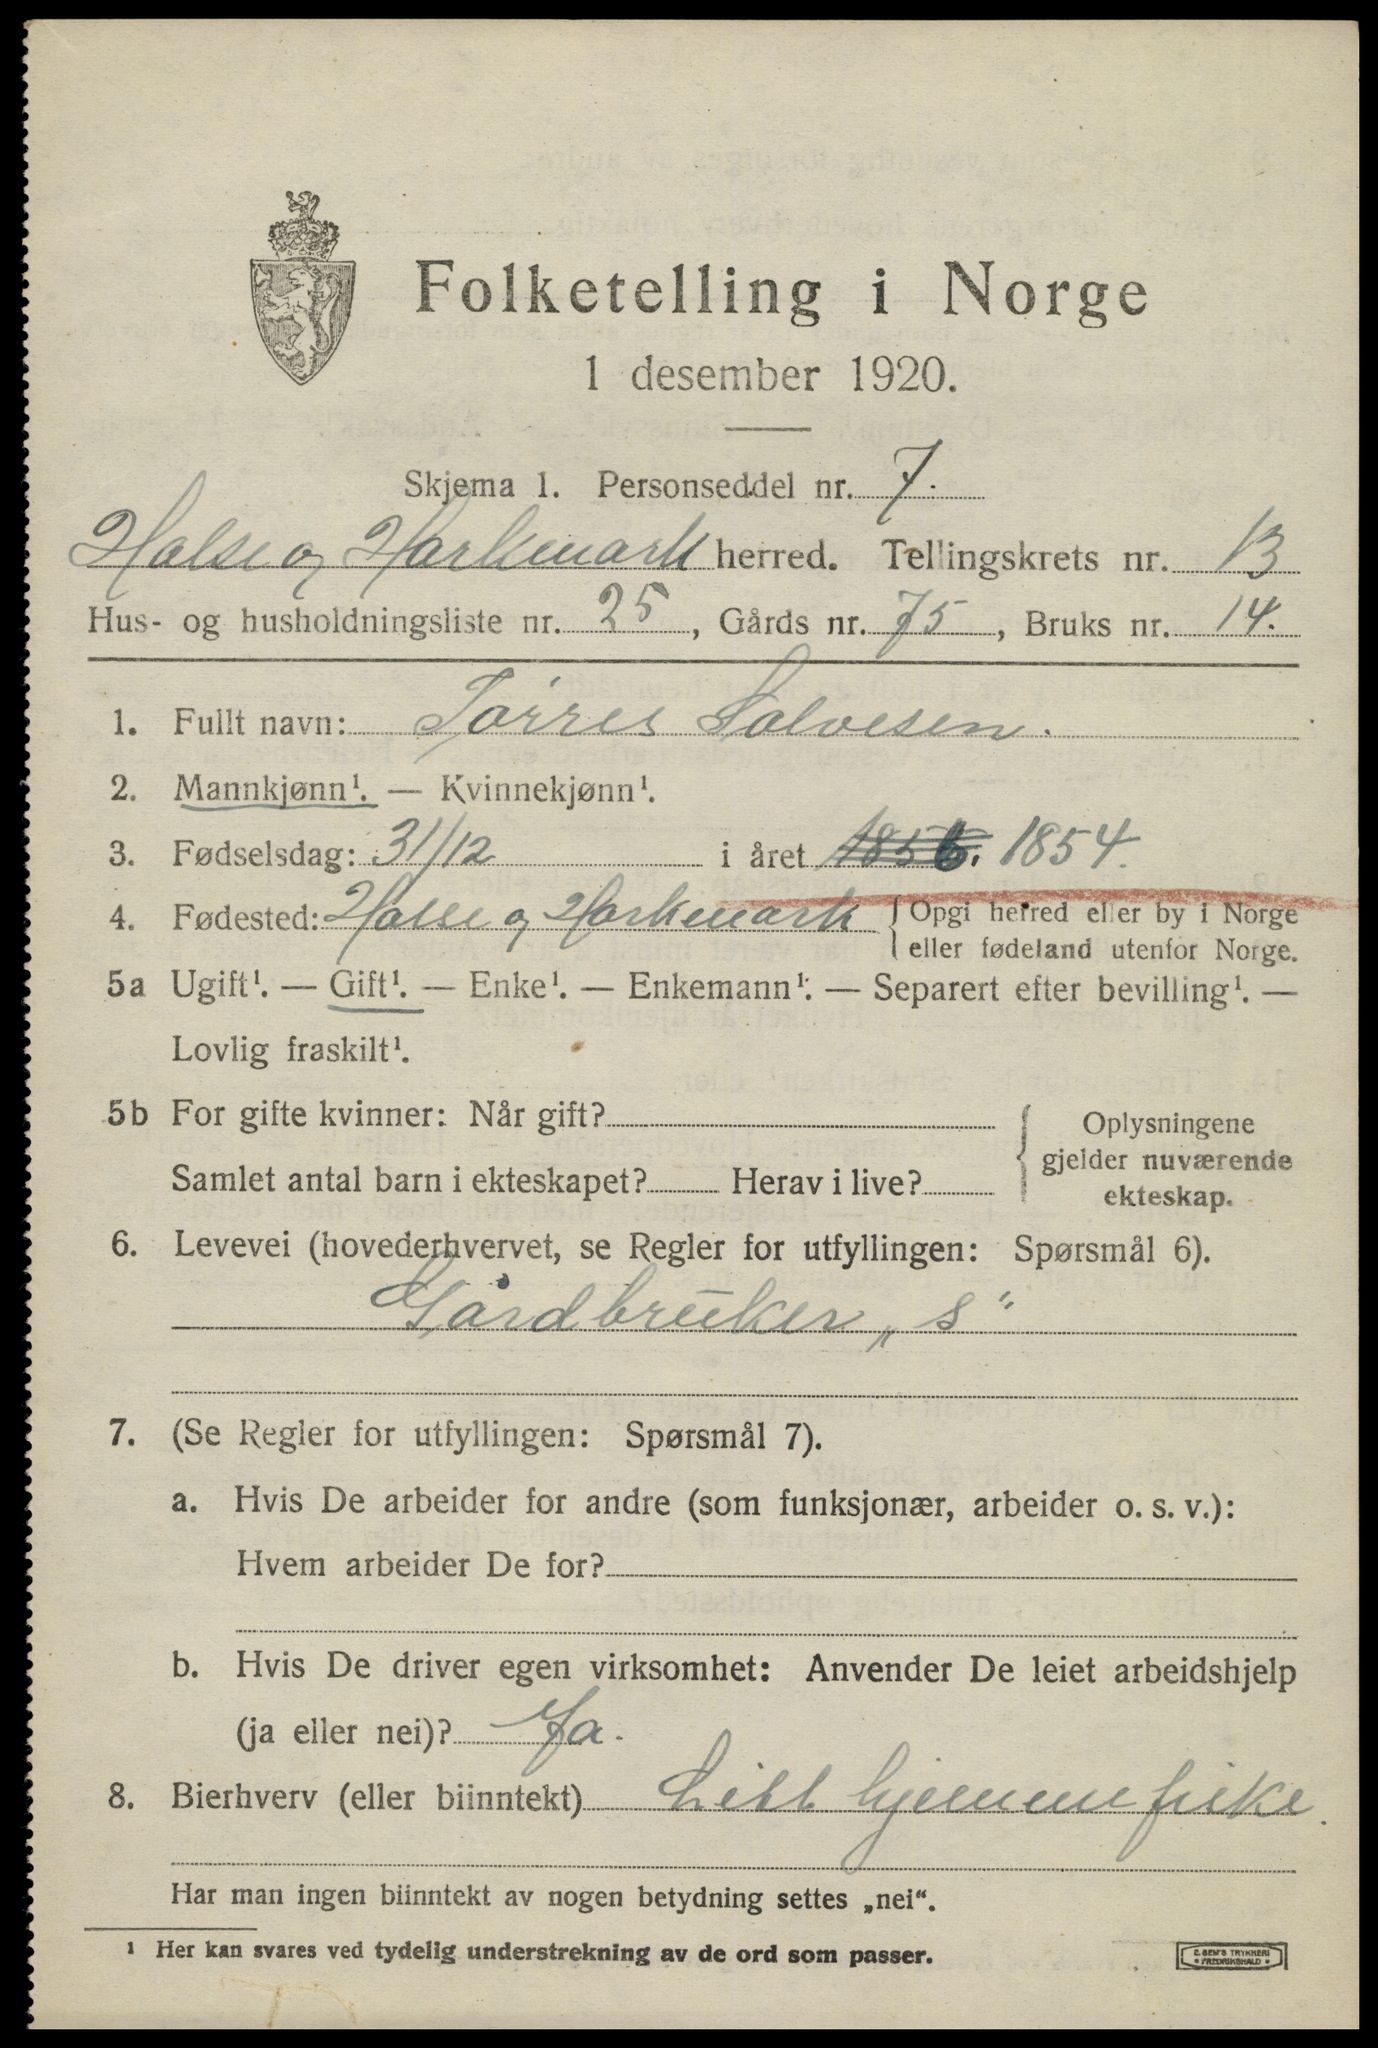 Folketelling i Norge
1 desember 1920.
Skjema 1. Personseddel nr. 7.
Halse og Harkmark herred. Tellingskrets nr. 13
Hus- og husholdningsliste nr. 25, Gårds nr. 75, Bruks nr. 14.
1. Fullt navn: Tórres Salvesen.
2. Mannkjønn¹. — Kvinnekjønn¹.
3. Fødselsdag: 31/12 i året 1856. 1854.
4. Fødested: Halse og Harkmark { Opgi herred eller by i Norge
eller fødeland utenfor Norge.
5a Ugift¹. — Gift¹. — Enke¹. — Enkemann¹. — Separert efter bevilling¹. —
Lovlig fraskilt¹.
5b For gifte kvinner: Når gift?
Samlet antal barn i ekteskapet? Herav i live?
{ Oplysningene
gjelder nuværende
ekteskap.
6. Levevei (hovederhvervet, se Regler for utfyllingen: Spørsmål 6).
Gårdbruker „s“
7. (Se Regler for utfyllingen: Spørsmål 7).
a. Hvis De arbeider for andre (som funksjonær, arbeider o. s. v.):
Hvem arbeider De for?
b. Hvis De driver egen virksomhet: Anvender De leiet arbeidshjelp
(ja eller nei)? Ja.
8. Bierhverv (eller biinntekt) Litt hjemmefiske.
Har man ingen biinntekt av nogen betydning settes „nei“.
¹ Her kan svares ved tydelig understrekning av de ord som passer.
E. SEM'S TRYKKERI
FREDRIKSHALD